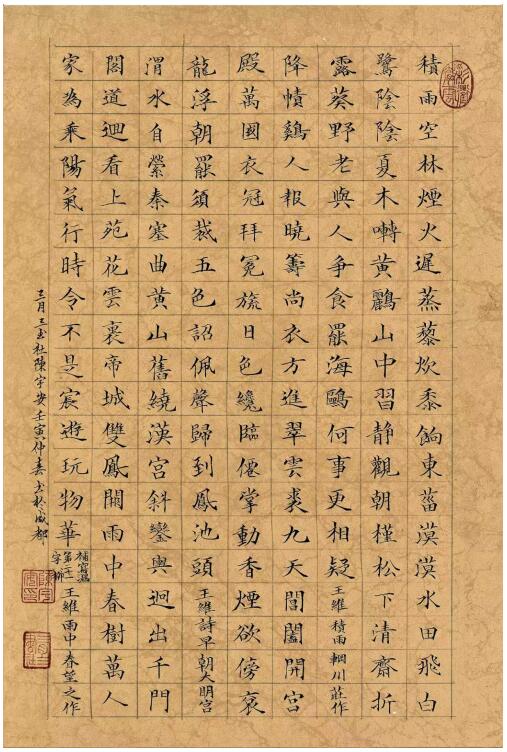 積雨空林煙火遲蒸藜炊黍餉東菑漠漠水田飛白
鷺陰陰夏木囀黃鸝山中習靜觀朝槿松下清齋折
露葵野老與人爭食罷海鷗何事更相疑王維積雨輞川莊作
降幘鷄人報曉籌尚衣方進翠雲裘九天閶闔開宮
殿萬國衣冠拜冕旒日色纔臨僊掌動香煙欲傍袞
龍浮朝罷須裁五色詔佩聲歸到鳳池頭王維詩早朝大明宮
渭水自縈秦塞曲黃山舊繞漢宮斜鑾輿迥出千門
閣道迴看上苑花雲裏帝城雙鳳闕雨中春樹萬人
家為乘陽氣行時令不是宸遊玩物華補寫漏字柳王維雨中春望之作
三月三陳宇安壬寅仲春书於成都